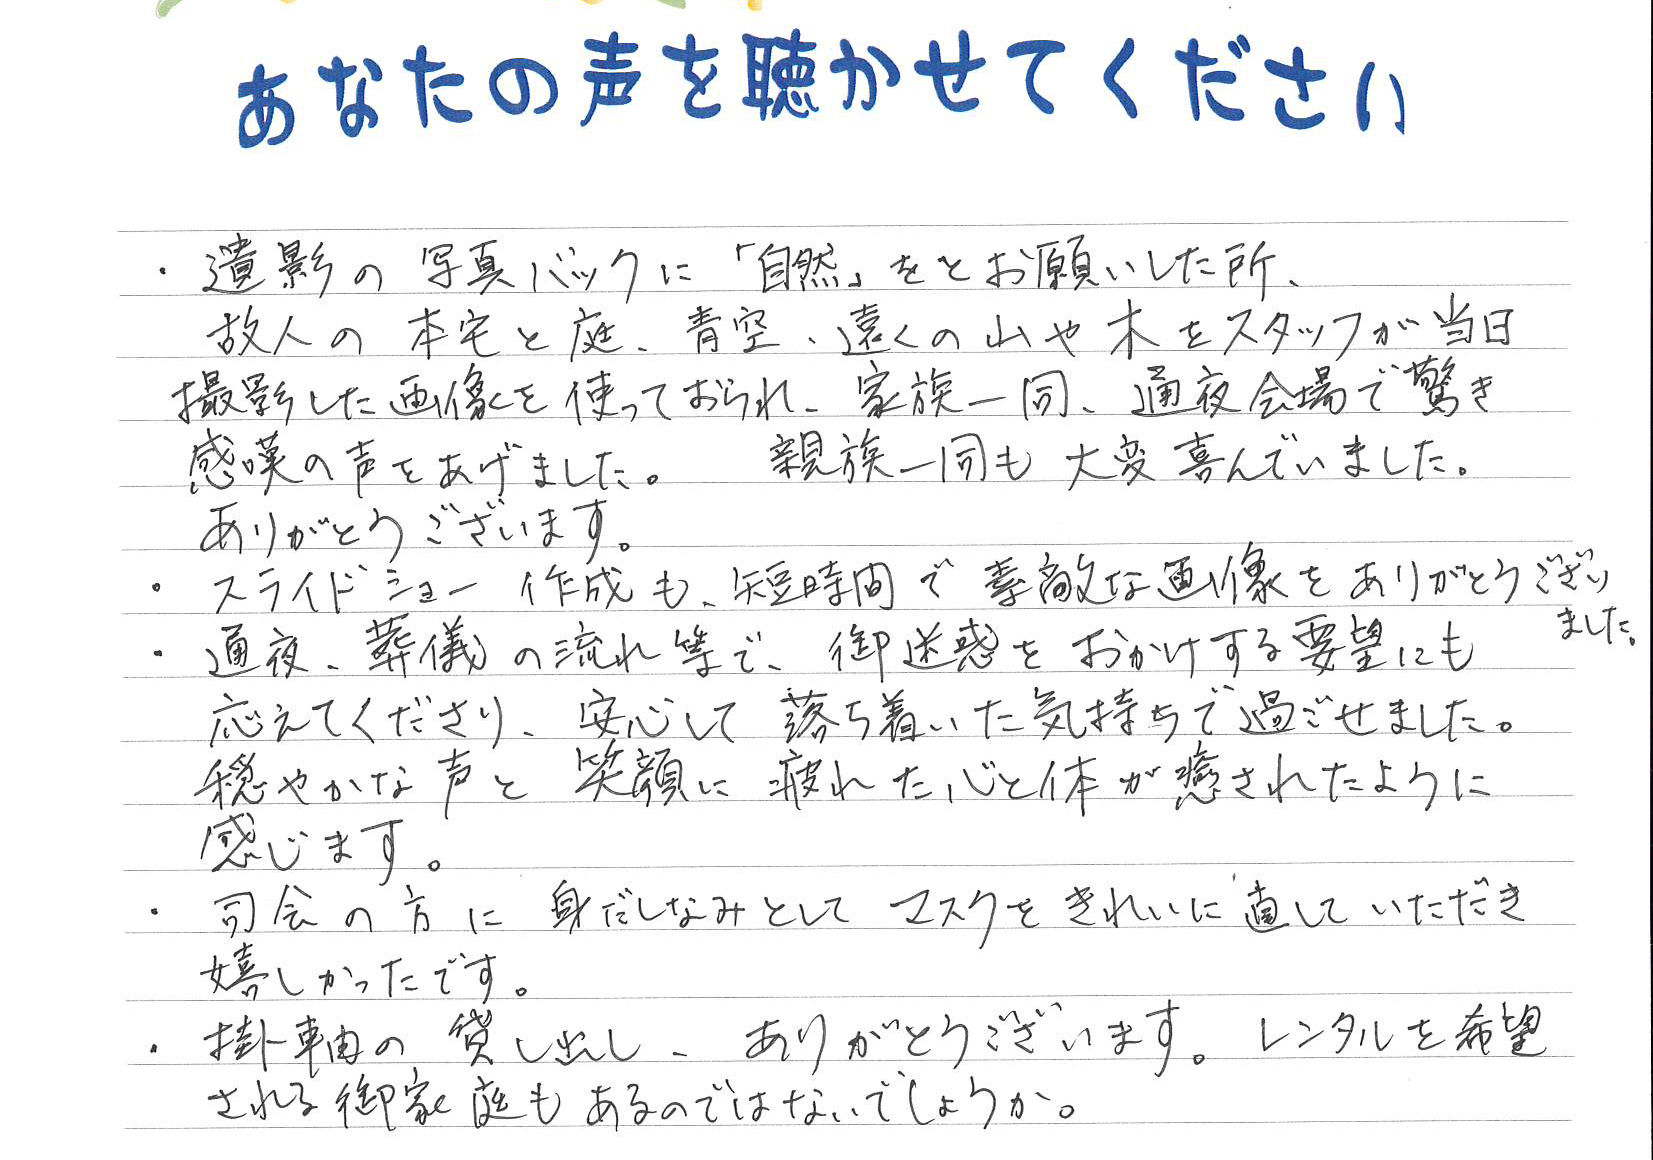 あなたの声を聴かせてください
・遺影の写真バックに「自然」をとお願いした所、
故人の本宅と庭、青空、遠くの山や木をスタッフが当日
撮影した画像を使っておられ、家族一同、通夜会場で驚き
感嘆の声をあげました。 親族一同も大変喜んでいました。
ありがとうございます。
・スライドショー作成も、短時間で素敵な画像をありがとうござい
ました。
・通夜、葬儀の流れ等で、御迷惑をおかけする要望にも
応えてくださり、安心して落ち着いた気持ちで過ごせました。
穏やかな声と笑顔に疲れた心と体が癒されたように
感じます。
・司会の方に身だしなみとしてマスクをきれいに直していただき
嬉しかったです。
・掛軸の貸し出し、ありがとうございます。レンタルを希望
される御家庭もあるのではないでしょうか。